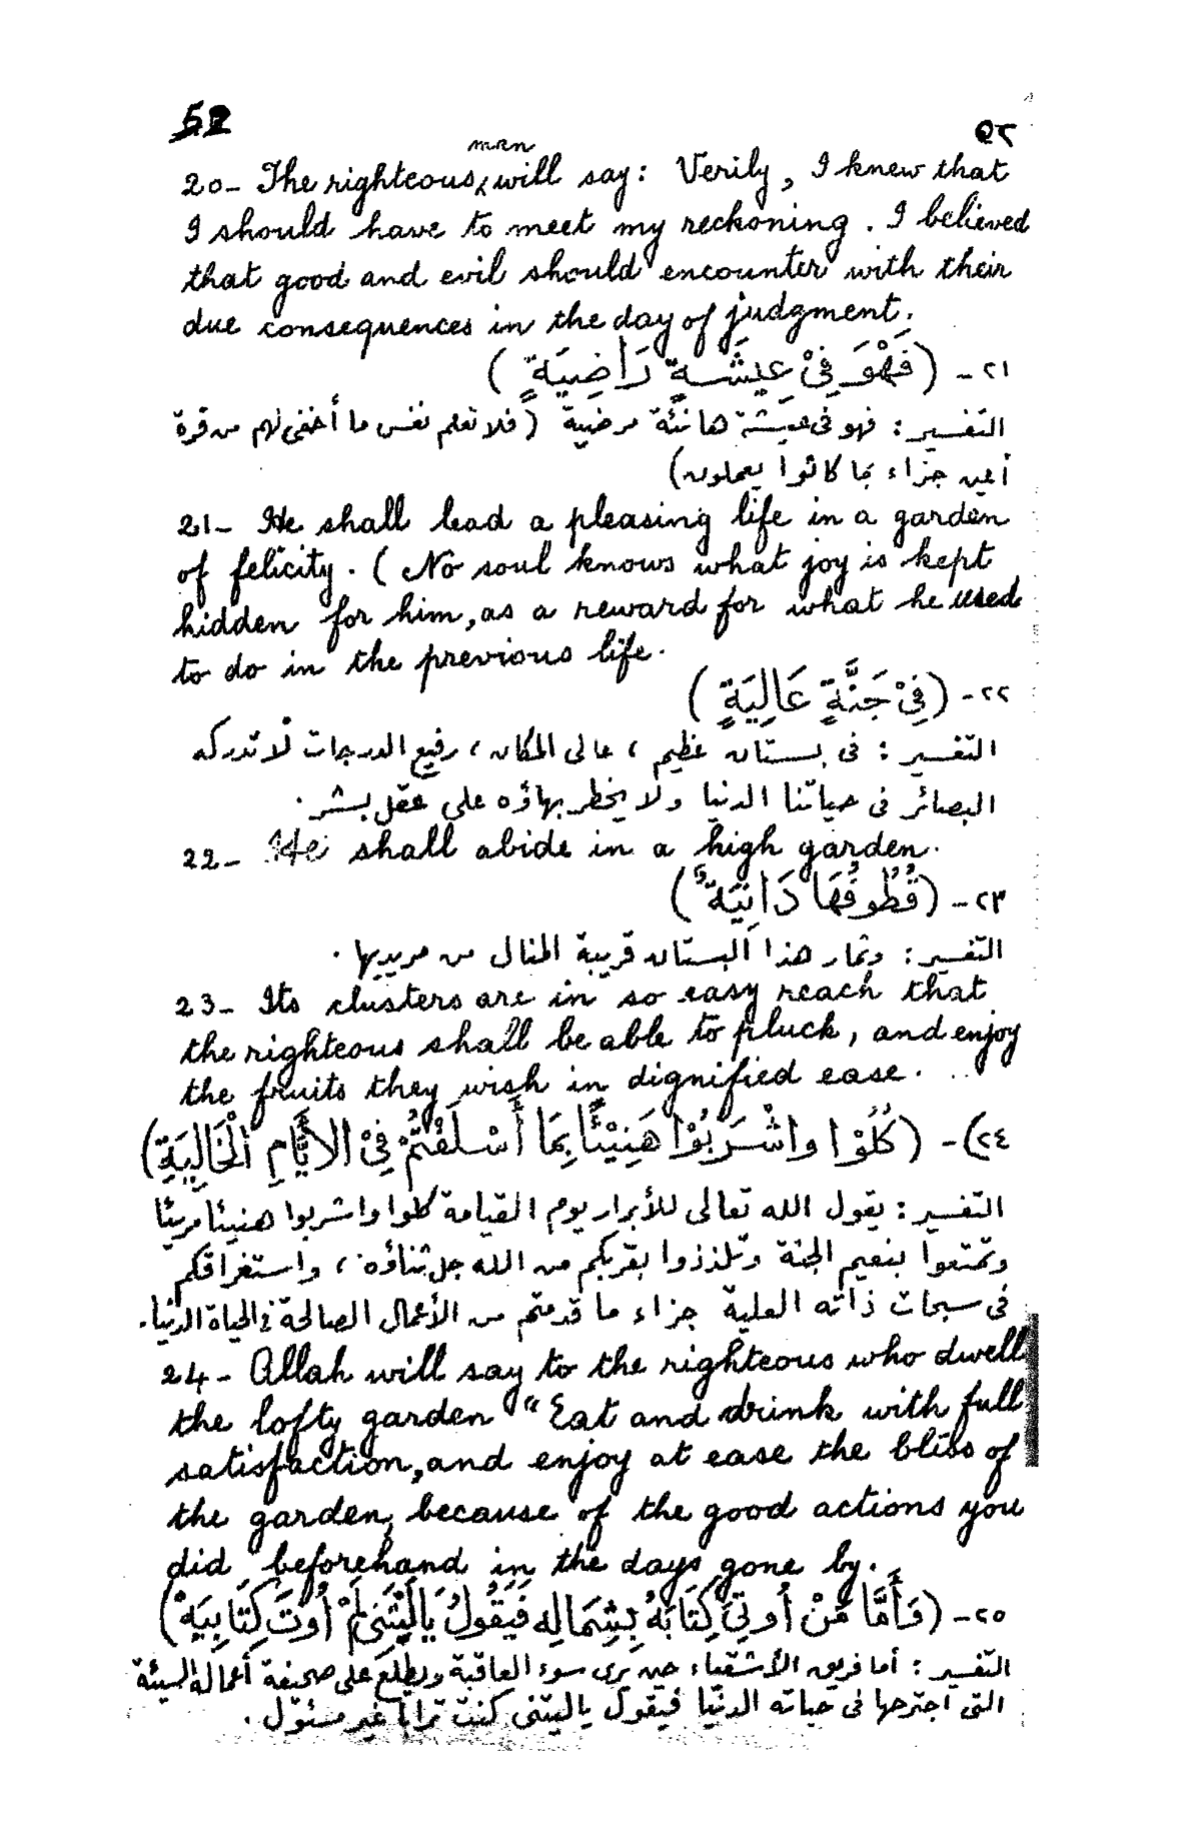 52 ٥٢
20- The righteous man will say: Verily, I knew that
I should have to meet my reckoning. I believed
that good and evil should encounter with their
due consequences in the day of judgment.
٢١- (فَهْوَ فِىْ عِيشَةٍ رَاضِيَةٍ)
التفسير: فهو فى عيشة هانئة مرضية (فلا تعلم نفس ما أخفى لهم من قرة
أعين جزاء بما كانوا يعملون)
21- He shall lead a pleasing life in a garden
of felicity. (No soul knows what joy is kept
hidden for him, as a reward for what he used
to do in the previous life.
٢٢- (فِىْ جَنَّةٍ عَالِيَةٍ)
التفسير: فى بستان عظيم، عالى المكان، رفيع الدرجات لا تدركه
البصائر فى حياتنا الدنيا ولا يخطر بهاؤه على عقل بشر.
22- He shall abide in a high garden.
٢٣- (قُطُوفُهَا دَانِيَةٌ)
التفسير: وثمار هذا البستان قريبة المنال من مريديها.
23- Its clusters are in so easy reach that
the righteous shall be able to pluck, and enjoy
the fruits they wish in dignified ease.
٢٤)- (كُلُوْا واشْرَبُوْا هَنِيْئًا بِمَا أَسْلَفْتُمْ فِىْ الأيَّامِ الْخَالِيَةِ)
التفسير: يقول الله تعالى للأبرار يوم القيامة كلوا واشربوا هنيئا مريئا
وتمتعوا بنعيم الجنة وتلذذوا بقربكم من الله جل ثناؤه، واستغراقكم
فى سبحات ذاته العلية جزاء ما قدمتم من الأعمال الصالحة فى الحياة الدنيا.
24- Allah will say to the righteous who dwell
the lofty garden "Eat and drink with full
satisfaction, and enjoy at ease the bliss of
the garden, because of the good actions you
did beforehand in the days gone by.
٢٥- (وَأَمَّا مَنْ أُوتِىَ كِتَابَهُ بِشِمَالِهِ فَيَقُولُ يَالَيْتَنِى لَمْ أُوتَ كِتَابِيَهْ)
التفسير: أما فريق الأشقياء حين يرى سوء العاقبة ويطلع على صحيفة أعماله السيئة
التى اجترحها فى حياته الدنيا فيقول ياليتنى كنت ترابا غير مسئول.